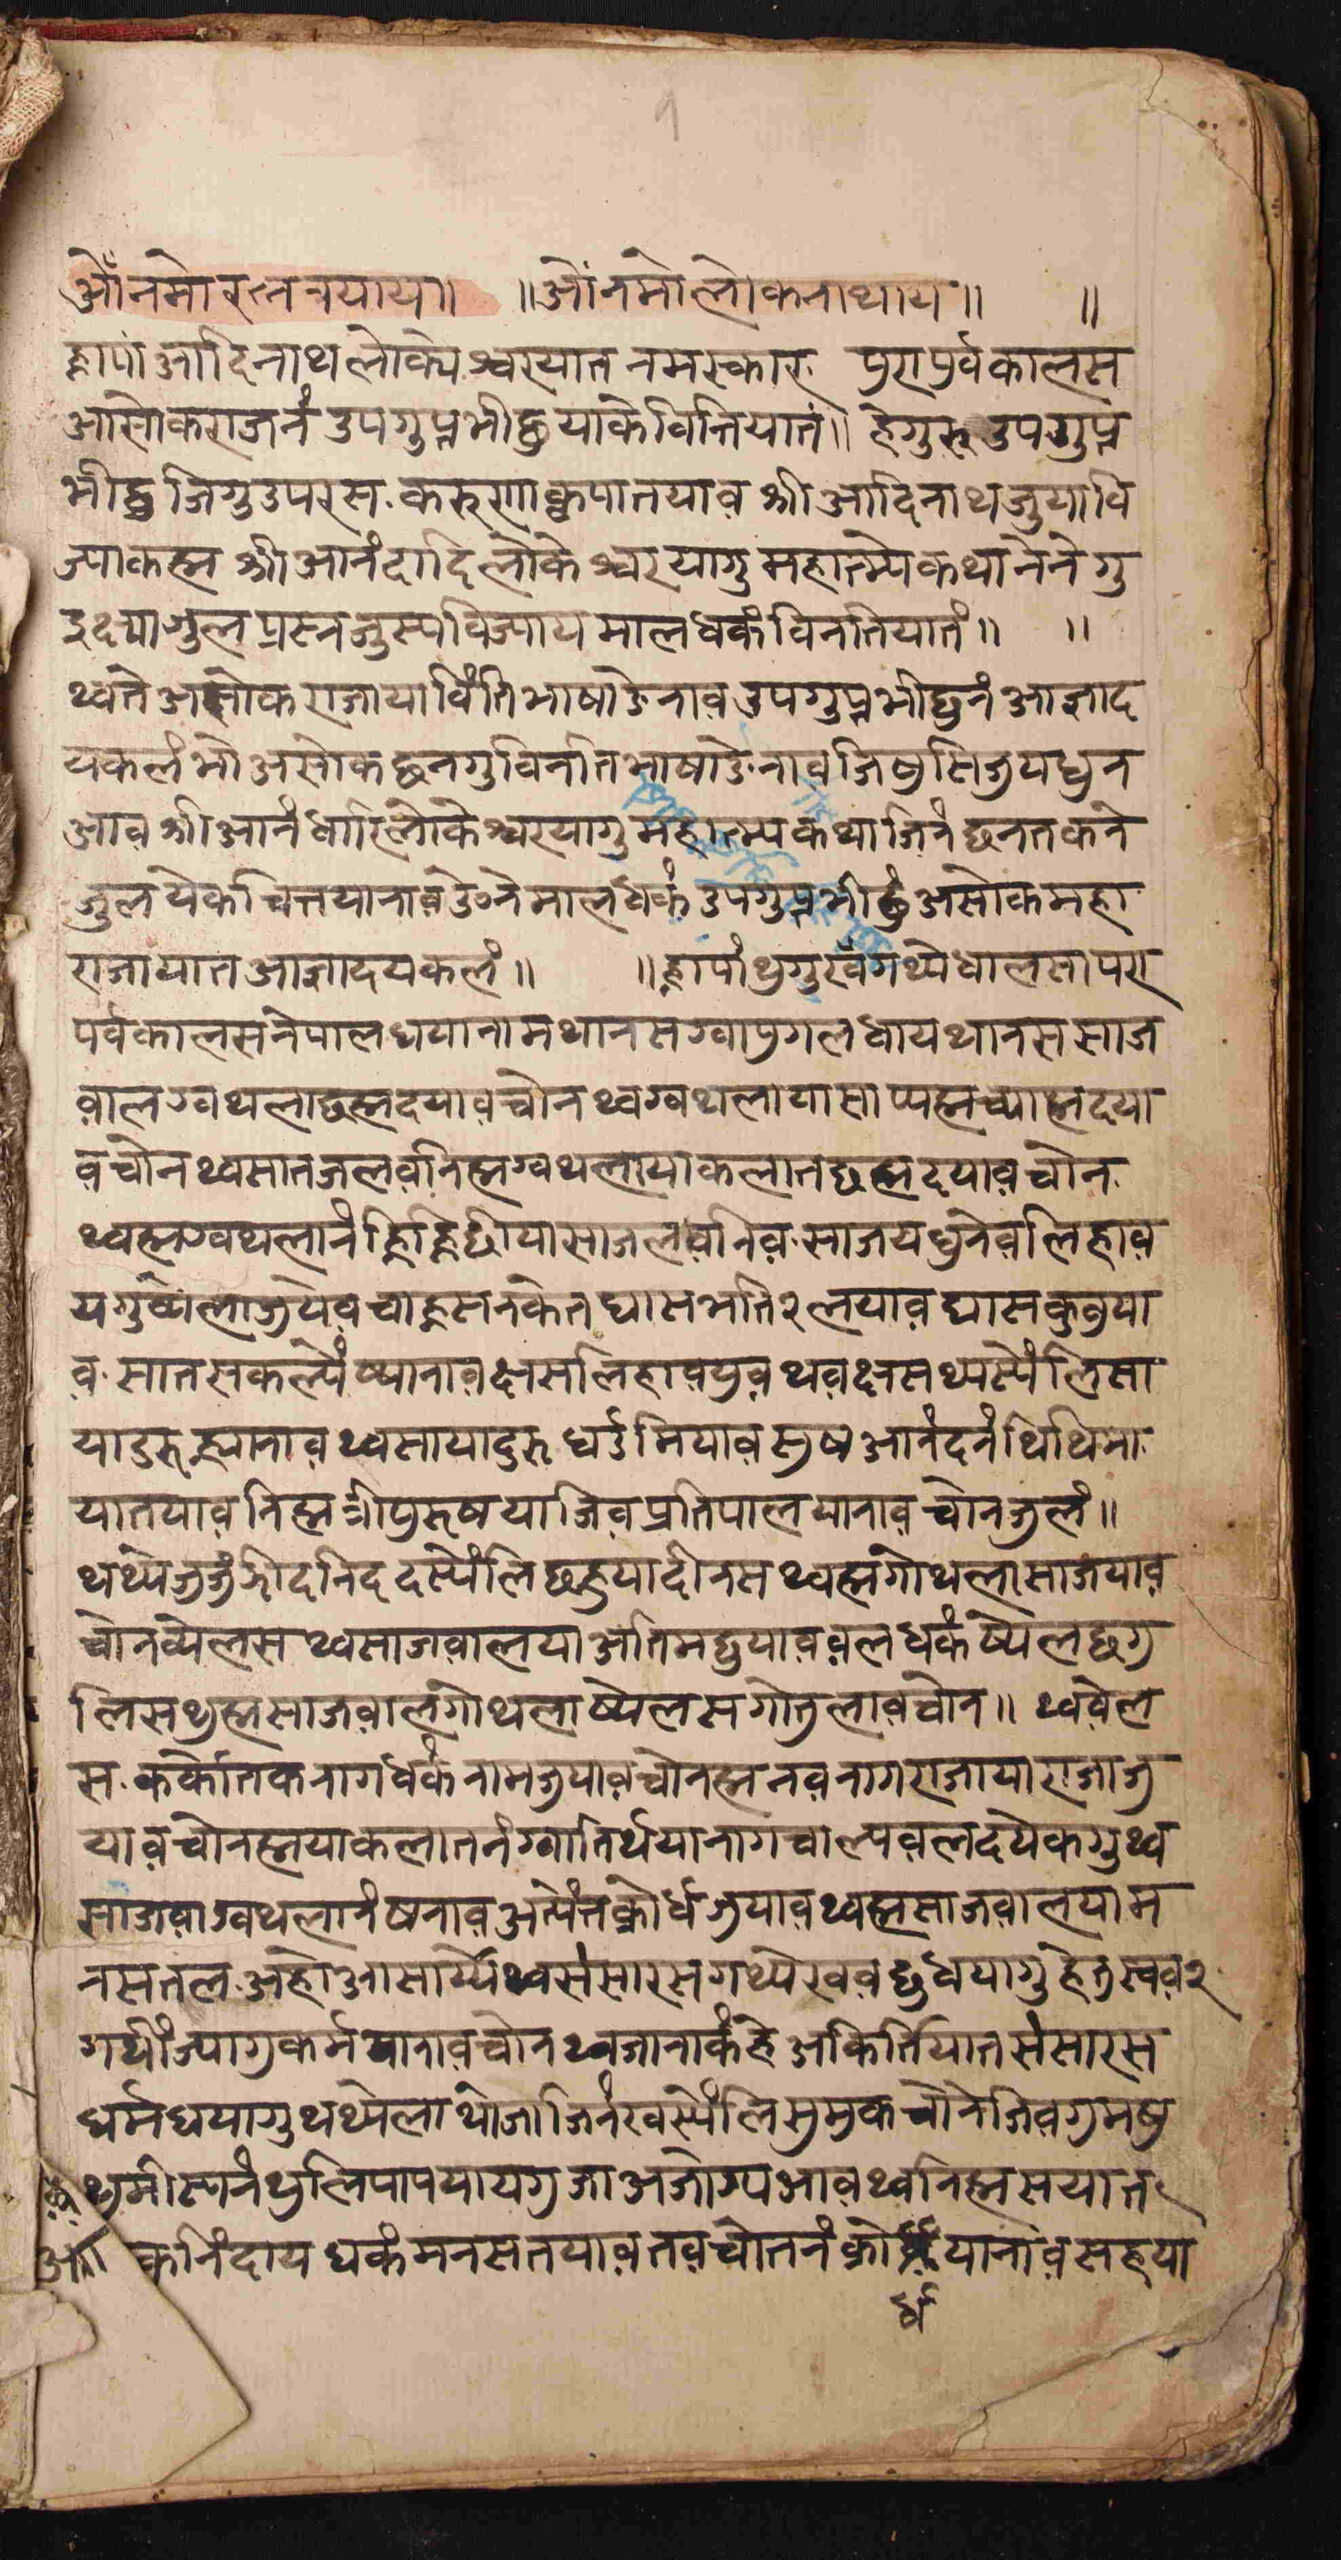 ओँ नमो रत्नत्रयाय॥ ॥ओं नमो लोकनाथाय॥ ॥
ह्नापां आदिनाथ लोक्येश्वरयात नमस्कार पुरापुर्वकालस
आसोकराजनं उपगुप्त भीछुयाके वित्तियातं॥ हेगुरु उपगुप्त
भीछु जिगु उपरस करुणा कृपा तयाव श्री आदिनाथ जुयावि
ज्याकह्म श्री आनंदादि लोकेश्वरयागु महात्म्ये कथा नेनेगु
इक्ष्या जुल प्रस्न जुस्य विज्याय माल धकं विनतियातं॥ ॥
थ्वते असोक राजाया विंति भाषा ङेनाव उपगुप्त भीछुनं आज्ञा द
यकलं भो असोक छनगु विनति भाषा ङेनाव जि षुसि जुय धुन
आव श्री आनंधादि लोकेश्वरयागु महात्म्य कथा जिनं छनत कने
जुल येकचित्त यानाव ङेने माल धकं उपगुप्त भीछुं असोक महा
राजायात आज्ञा दयकलं॥ ॥ह्नापां थुगु खँ गथ्ये धालसा परा
पर्वकालस नेपाल धयानाम थानस ग्वापुगल धाय थानस साज
वाल ग्वथला छह्म दयाव चोन थ्व ग्वथलाया सा प्यह्म च्याह्म दया
व चोन थ्व सात जल वनिह्म ग्वथलाया कलात छह्म दयाव चोन
थ्वह्म ग्वथलानं ह्निह्निछिया साजल वनिव साजय धुनेव लिहाव
यगु ब्यला जुयेव चाह्नसनकेत घास भति २ लयाव घास कु बुया
व सात सकल्यें ब्यानाव क्षस लिहा वयुव थव क्षस थ्यस्यें लि सा
या दुरु ह्यानाव थ्व साया दुरु घर्उ मियाव सुष आनंदनं थिथि मा
या तयाव निह्म श्री पुरुषया जिव प्रतिपाल यानाव चोन जुलं॥
थथ्ये जुजुं र्षीद निद दस्यें लि छह्नुया दीनस थ्वह्म गोथला साजयाव
चोन व्यलस थ्व साजवालया अति मद्गुयाव वल धकं ष्येल छगु
लिस थुह्म साजवाल गोथला ष्येलस गोतुलाव चोन॥ थ्व वेल
स कर्कोतक नाग धकं नाम जुयाव चोनह्म नव नागराजाया राजा जु
याव चोनह्मया कलातनं ग्वातिर्थया नाग चाल्य वल दयेकगु थ्व
साजवा ग्वथलानं षनाव अत्येंत क्रोर्ध जुयाव थ्वह्म साजवालया म
नस तल अहो आसार्य्ये थ्व संसारस गथ्ये खव द्गु धयागु हेतु स्वव २
गथीं ज्यागु कर्म यानाव चोन थ्वजानाकं हे अकिर्तियात संसारस
धर्म धयागु थथ्ये ला थोजा जिनं खस्यें लि सुमुक चोने जिव गु मषु
थुमीस्णनं थुलि पाप यायगु जा अजोग्य आव थ्व निह्मसयात
क निंदाय धकं मनस तयाव तव चोतनं क्रो यानाव सह्नया
र्ध